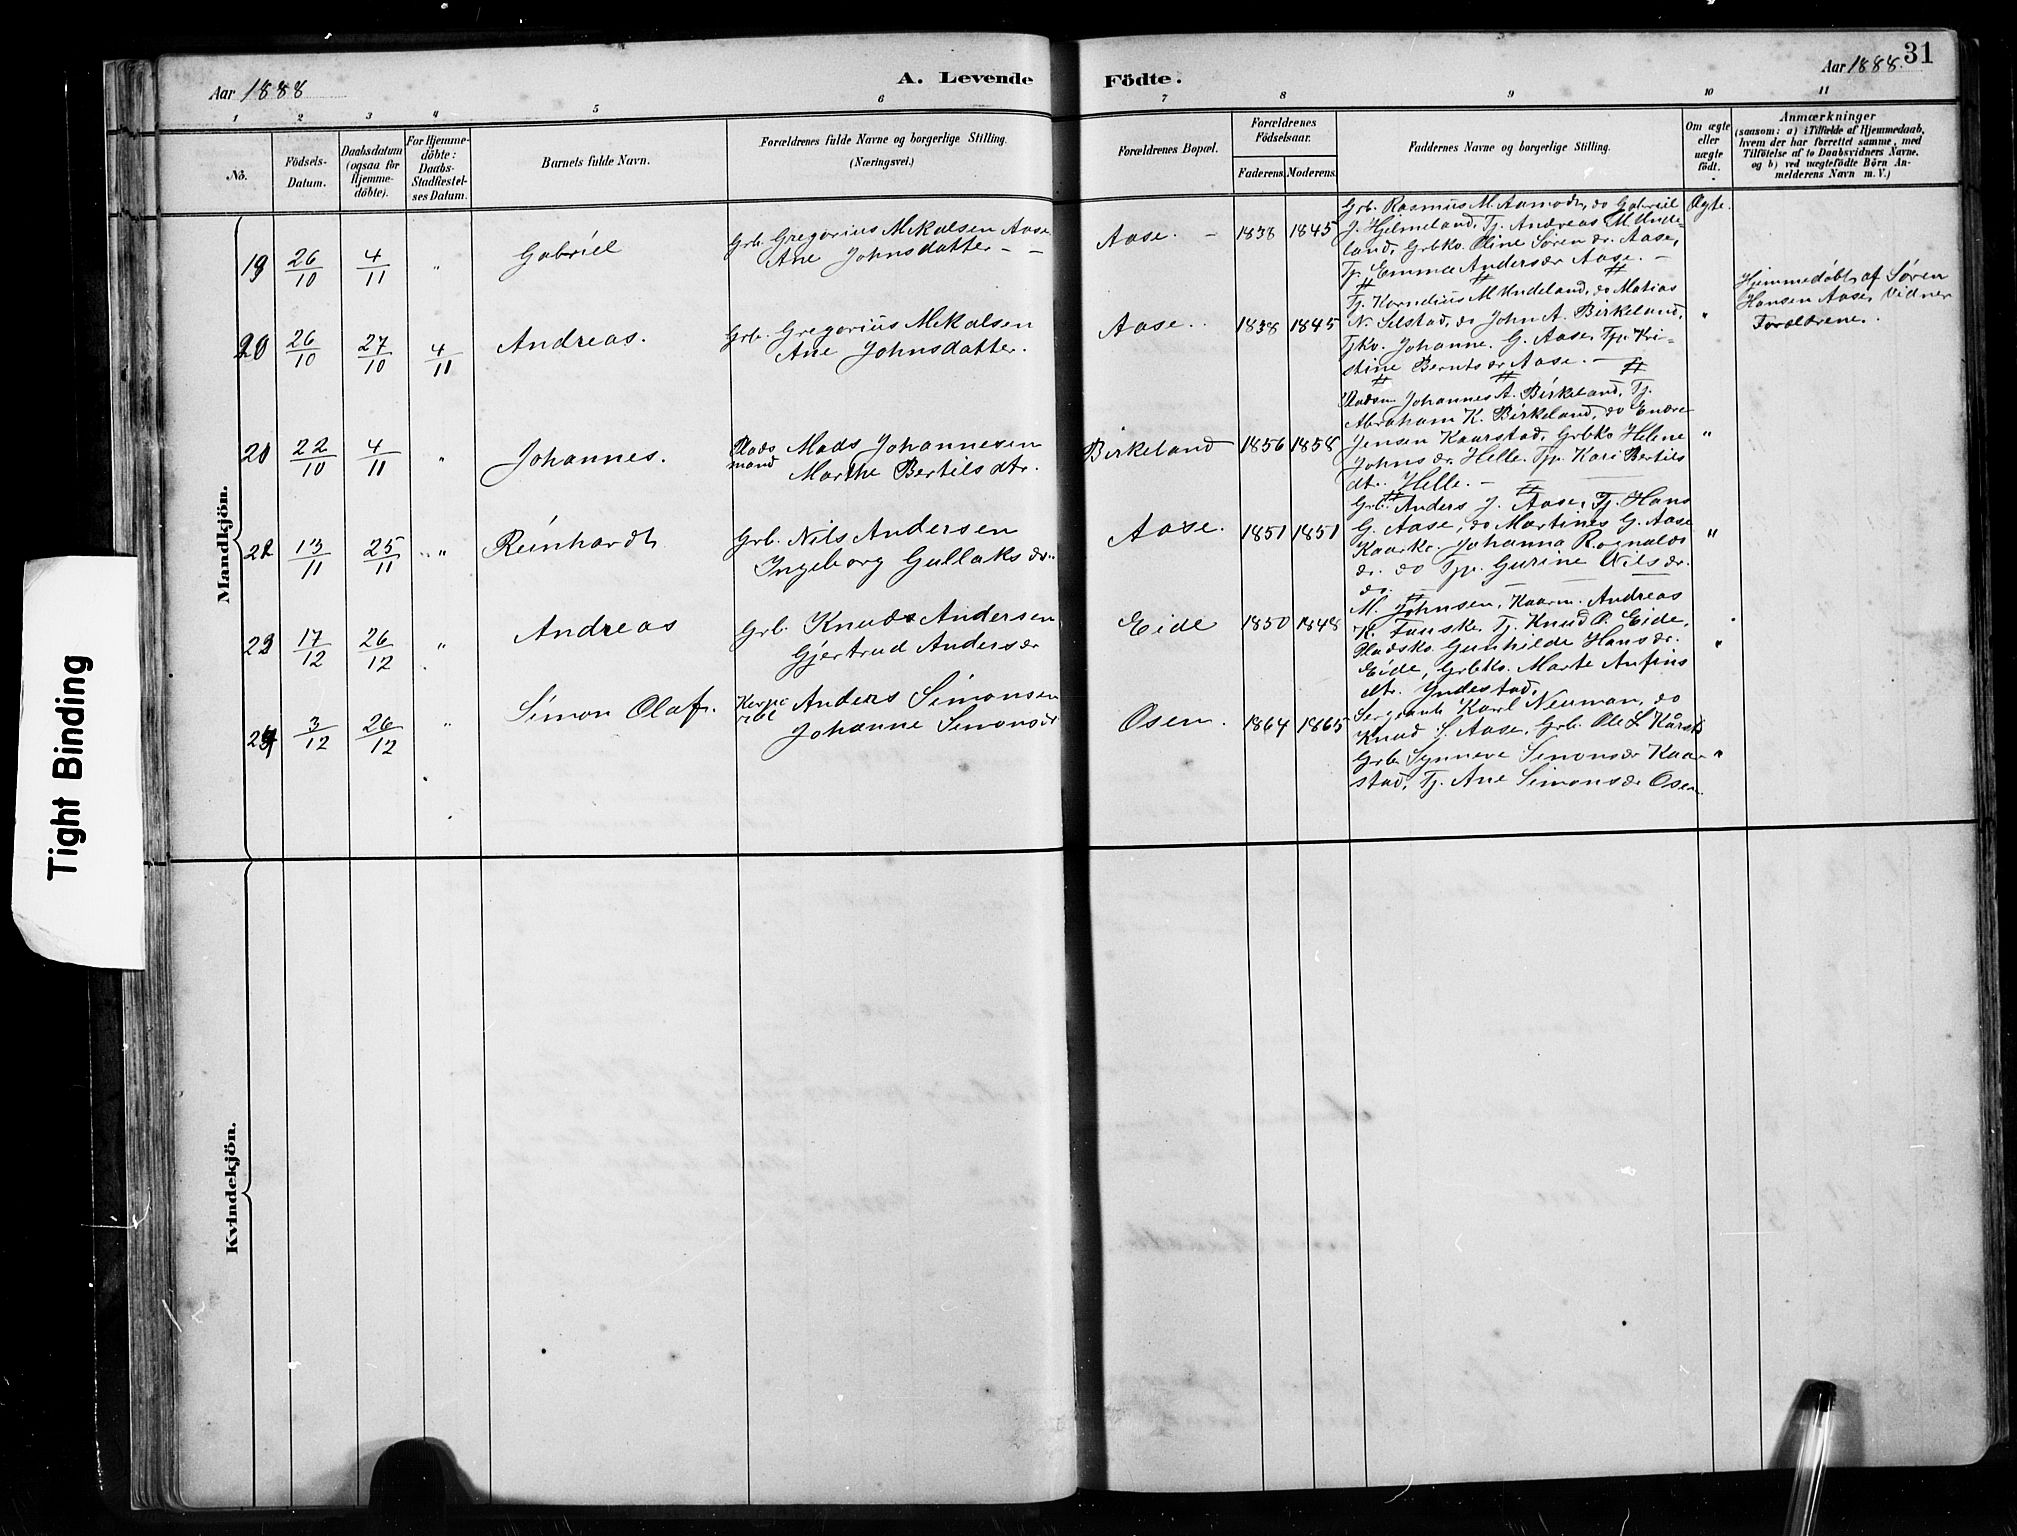 31
Aar 1888
A. Levende
Födte.
Aar 1888.
1 2 3 4 5 6 7 8 9 10 11
No.
Födsels-
Datum.
Daabsdatum
(ogsaa for
Hjemme-
döbte).
For Hjemme-
döbte:
Daabs-
Stadfæstel-
ses Datum.
Barnets fulde Navn.
Forældrenes fulde Navne og borgerlige Stilling.
(Næringsvei.)
Forældrenes Bopæl.
Forældrenes
Födselsaar.
Faderens. Moderens.
Faddernes Navne og borgerlige Stilling.
Om ægte
eller
uægte
födt.
Anmærkninger
(saasom: a) i Tilfælde af Hjemmedaab,
hvem der har forrettet samme, med
Tilföielse af to Daabsvidners Navne.
og b) ved uægtefödte Börn An-
melderens Navn m. V.)
Mandkjön.
19 26/10 4/11 " Gabriel
Grb. Gregorius Mikalsen Aase
Ane Johnsdatter –
Aase. – 1838 1845
Grb. Rasmus M. Aamodt, do Gabriel
J. Hjelmeland, Tj. Andreas M. Unde-
land, Grbko. Oline Søren dr. Aase,
Tp. Emma Andersdr Aase. –
Ægte.
20 26/10 27/10 4/11 Andreas.
Grb. Gregorius Mikalsen
Ane Johnsdatter.
Aase. 1838 1845
Tj. Kornelius M Undeland, do Matias
N. Selstad, do John A. Birkeland,
Tpko. Johanne. G. Aase, Tp. Kri-
stine Berntsdr Aase. –
"
Hjemmedøbt af Søren
Hansen Aase, Vidner
Forældrene.
21 22/10 4/11 " Johannes.
Plads
mand Mads Johannesen
Marthe Bertilsdtr.
Birkeland 1856 1858
Pladsm Johannes A. Birkeland, Tj.
Abraham K. Birkeland, do Endre
Jensen Kaarstad, Grbko Helene
Johnsdr. Helle. Tp. Kari Bertils
dtr. Helle. –
"
22 13/11 25/11 " Reinhardt
Grb. Nils Andersen
Ingeborg Gullaksdr.
Aase. 1851 1851
Grb. Anders J. Aase, Tj. Hans
G. Aase, do Martines G. Aase
Kaarkr. Johanna Rognalds
dr. do Tp. Gurine Nilsdr.
do.
"
23 17/12 26/12 " Andreas
Grb. Knud Andersen
Gjertrud Andersdr
Eide 1850 1848
M. Johnsen, Kaarm. Andreas
K. Fauske, Tj. Knud A. Eide,
Pladsko. Gunhilde Hansdr.
Eide, Grbko. Marte Anfins
dtr. Yndestad,
"
24 3/12 26/12 " Simon Olaf.
Anders Simonsen
Johanne Simonsdr
Osen. 1864 1865
Sergeant Karl Neuman, do
Knud S. Aase, Grb. Ole L Kårsta
Grb. Synneve Simonsdr Kaar-
stad, Tj. Ane Simonsdr Osen.
"
Kvindekjön.
Tight Binding